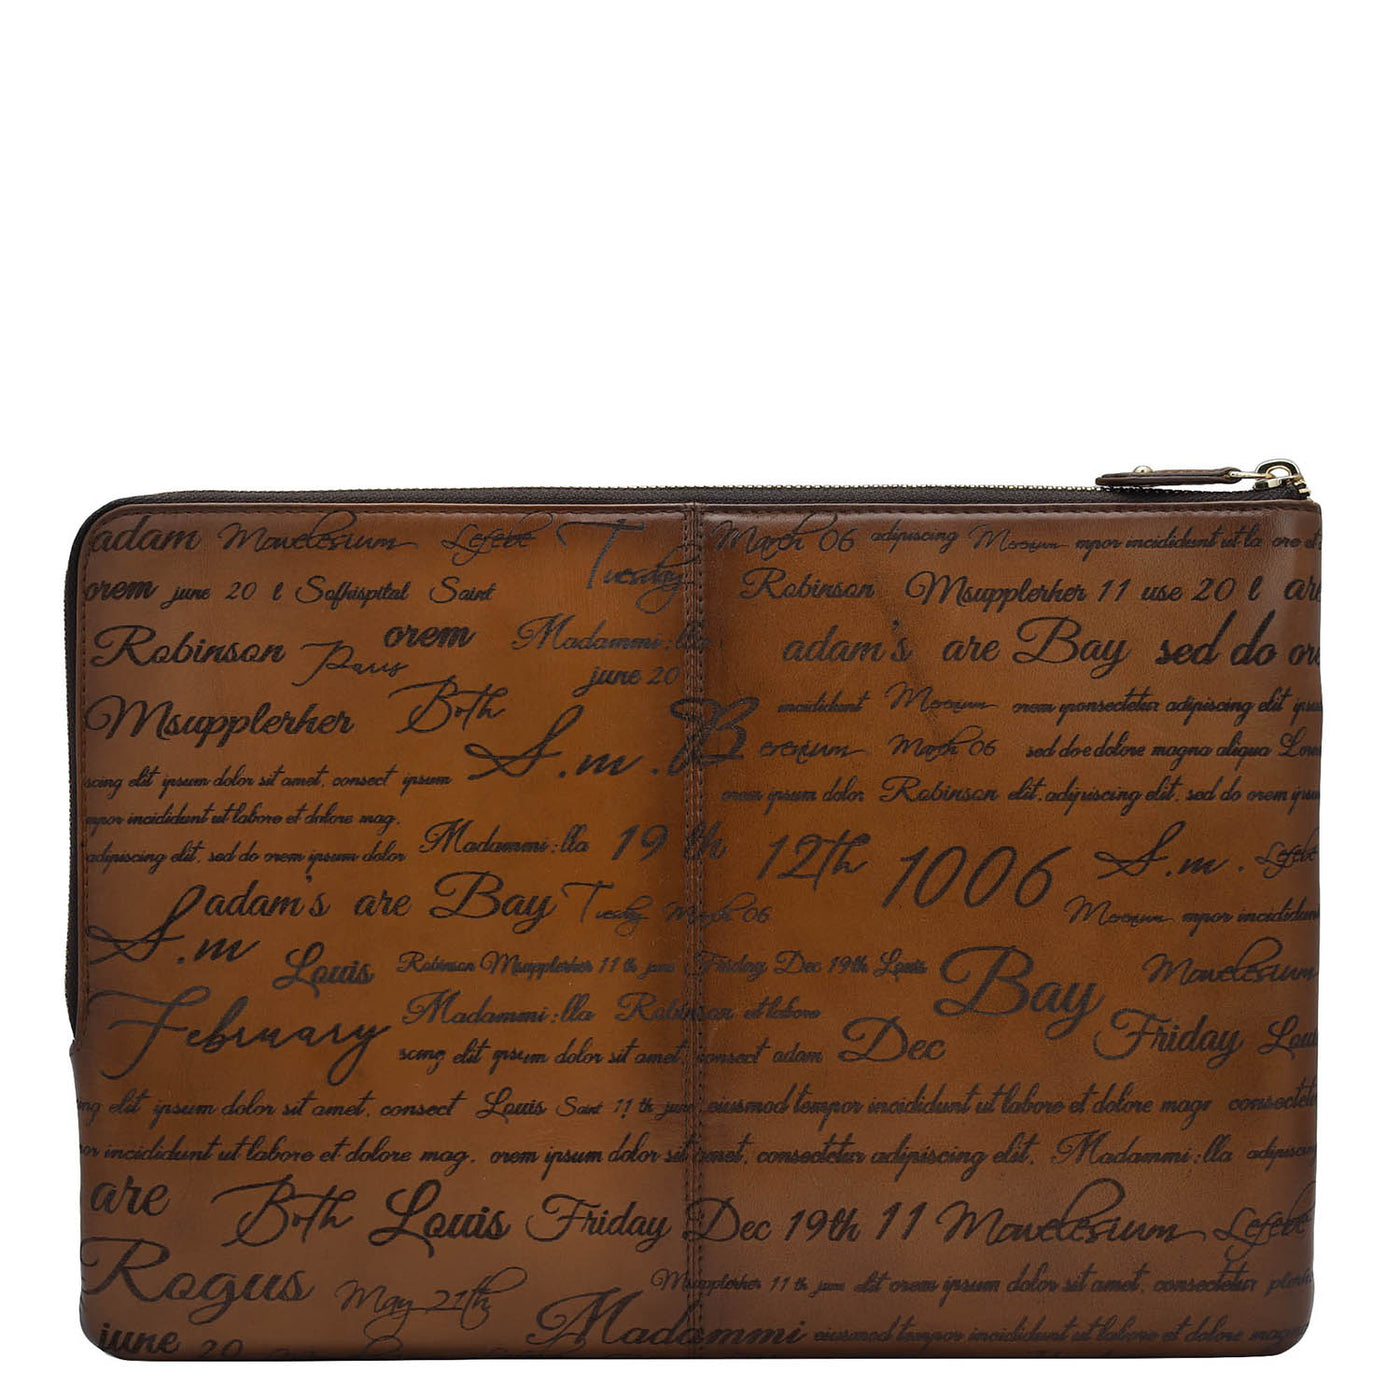 adam Mowelesium Lefebe Tuesday March 06 adipiscing Merenium mpor incididunt ut la ore et
orem june 20 l Sofhispital Saint Robinson Msupplerher 11 use 20 l are
Robinson Paris orem Madammi:lla adam's are Bay sed do
june 20
Msupplerher Both incididunt Merenium orem yponsectetur adipiscing elit ipsu
S.m.B erenium March 06 sed do e dolore magna aliqua Lore
scing elit ipsum dolor sit amet, consect ipsum orem ipsum dolor Robinson elit, adipiscing elit, sed do orem ipsu
mpor incididunt ut labore et dolore mag.
adipiscing elit, sed do orem ipsum dolor Madammi:lla 19 th 12th 1006 S.m. Lefebe
adam's are Bay Tuesday March 06 Merenium mpor incididunt
S.m Louis Robinson Msupplerher 11 th june Friday Dec 19th Louis Bay Mowelesium
February Madammi:lla Robinson et labore Friday Loui
scing elit ipsum dolor sit amet, consect adam Dec
ng elit ipsum dolor sit amet, consect Louis Saint 11 th june eiusmod tempor incididunt ut labore et dolore magr consectet
or incididunt ut labore et dolore mag, orem ipsum dolor sit amet, consectetur adipiscing elit, Madammi:lla adipiscing
are Both Louis Friday Dec 19th 11 Mowelesium Lefebe
Rogus May 21th Msupplerher 11 th june elit orem ipsum dolor sit amet, consectetur
june 20 Madammi eiusmod tempor incididunt ut labore et dolore mag